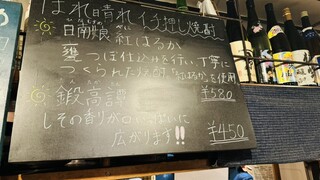 はれ晴れ イチ押し焼酎
日南娘 紅はるか
甕つぼ仕込みを行い、丁寧に
つくられた 紅はるか を使用
¥580
鍛高譚
しその香りが口いっぱいに
広がります!!
¥450